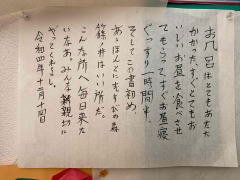 お風呂はとてもあたた
かかった。すぐとてもお
いしいお昼を食べさせ
てもらって、すぐお昼寝
ぐっすり一時間半。
そしてこの書初め、
あゝほんとにむすびの森
篠ノ井はいい所だ。
こんな所へ毎日来た
いなあ。みんな親切に
やってくれるし。
令和四年十二月十四日